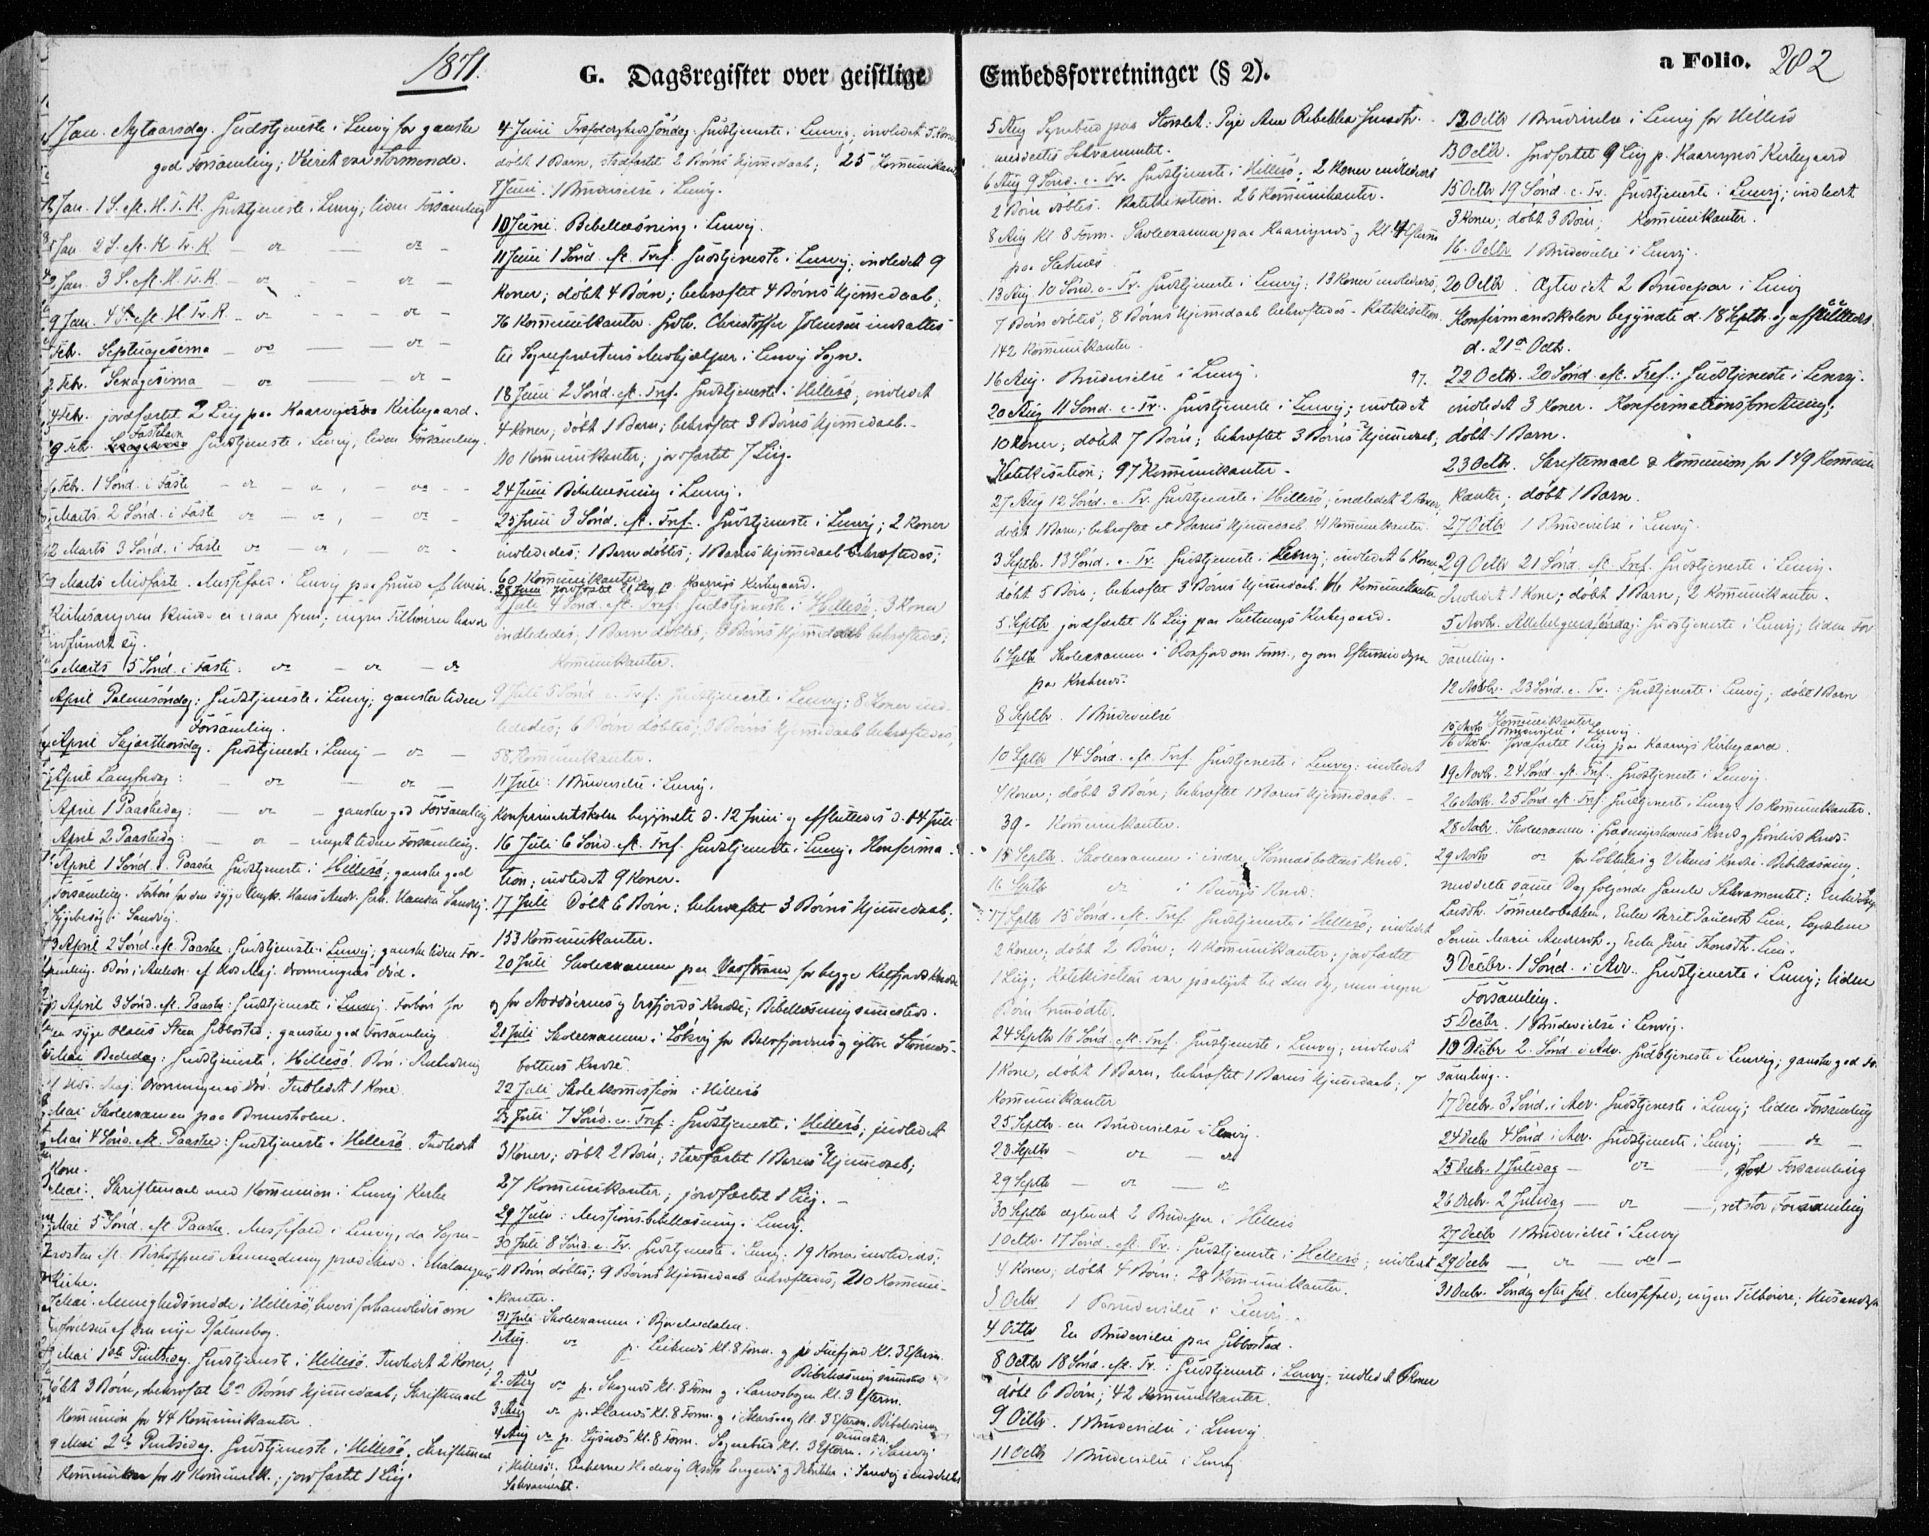 1871.
G. Dagsregister over geistlige Embedsforretninger (§ 2).
a Folio. 202
1 Jan. Nytaarsdag. Gudstjeneste i Lenvig for ganske
god Forsamling; Veiret var stormende.
Jan. 1 S. eft. H. T. K. Gudstjeneste i Lenvig; liden Forsamling
Jan. 2 S. eft. H. Tr. K. — do — do —
Jan. 3 S. eft. H. Tr. K. — do — do —
9 Jan. 4 S. eft. H. Tr. K. — do — do —
Febr. Septuagesima — do — do —
Febr. Sexagesima — do — do —
Febr. jordfæstet 2 Lig paa Kaarvignes Kirkegaard.
9 Feb. Fastelavn Gudstjeneste i Lenvig, liden Forsamling.
6 Febr. 1 Sønd. i Faste — do — do —
5 Marts 2 Sønd. i Faste — do — do —
12 Marts 3 Sønd. i Faste — do — do —
Marts Midfaste. Messefald i Lenvig paa Grund af Uveir.
Kirkesangeren kunde ei naae frem; ingen Tilhørere havde
indfundet sig.
6 Marts 5 Sønd. i Faste: do — do — do
April Palmesøndag: Gudstjeneste i Lenvig; ganske liden
Forsamling.
April Skjærthorsdag. Gudstjeneste i Lenvig — do —
April Langfredag: — do — do —
April 1 Paaskedag: — do — ganske god Forsamling
April 2 Paaskedag: — do — meget liden Forsamling.
April 1 Sønd. e. Paaske Gudstjeneste i Hillesø; ganske god
Forsamling. Forbøn for den syge
Sygebesøg i Sandvig.
3 April 2 Sønd. eft. Paaske: Gudstjeneste i Lenvig; ganske liden For-
samling. Bøn i Anledn. af Hds Maj. Dronningens Død.
April 3 Sønd. eft. Paaske: Gudstjeneste i Lenvig. Forbøn for
den syge Olaus Steen Gibbostad; ganske god Forsamling
Mai Bededag: Gudstjeneste i Hillesø. Bøn i Anledning
af Hds. Maj. Dronningens Død. Indledet 1 Kone.
Mai Skoleexamen paa Brunsholm.
Mai 4 Sønd. eft. Paaske: Gudstjeneste i Hillesø. Indledet
Kone.
Mai: Skriftemaal med Kommunion i Lenvig Kirke
Mai 5 Sønd. eft Paaske. Messefald i Lenvig, da Sogne-
præsten eft. Biskoppens Anmodning prædikede i Malangens
Kirke.
Mai. Menighedsmøde i Hillesø, hvori forhandledes om
Indførelsen af den nye Psalmebog.
Mai 1ste Pintsedag. Gudstjeneste i Hillesø. Indledt 2 Koner,
døbt 3 Børn, bekræftet 2de Børns Hjemmedaab; Skriftemaal
Kommunion for 44 Kommunikanter.
9 Mai 2de Pintsedag. Gudstjeneste i Hillesø; Skriftemaal
Kommunion for 11 Kommunik.; jordfæstet 1 Lig.
4 Juni Trefoldigheds Søndag: Gudstjeneste i Lenvig; indledet 5 Koner
døbt 1 Barn, stadfæstet 2 Børns Hjemmedaab; 25 Kommunikanter
7 Juni: 1 Brudevielse i Lenvig.
10 Juni: Bibellæsning i Lenvig.
11 Juni 1 Sønd. eft. Tref. Gudstjeneste i Lenvig; indledet 9
Koner; døbt 4 Børn; bekræftet 4 Børns Hjemmedaab;
76 Kommunikanter. Grdbr. Christoffer Johnsen indsattes
til Sognepræstens Medhjælper i Lenvig Sogn.
18 Juni 2 Sønd. eft. Tref. Gudstjeneste i Hillesø; indledet
4 Koner; døbt 1 Barn; bekræftet 3 Børns Hjemmedaab.
110 Kommunikanter; jordfæstet 7 Lig.
24 Juni Bibellæsning i Lenvig.
25 Juni 3 Sønd. eft. Tref. Gudstjeneste i Lenvig; 2 Koner
indlededes; 1 Barn døbtes; 1 Barns Hjemmedaab bekræftedes;
60 Kommunikanter.
28 Juni jordfæstet Lig p. Kaarvigs Kirkegaard.
2 Juli 4 Sønd. eft. Tref: Gudstjeneste i Hillesø; 3 Koner
indlededes; 1 Barn døbtes; 3 Børns Hjemmedaab bekræftedes;
Kommunikanter.
9 Juli 5 Sønd e. Tref: Gudstjeneste i Lenvig; 8 Koner ind-
lededes; 6 Børn døbtes; 3 Børns Hjemmedaab bekræftedes,
58 Kommunikanter.
11 Juli: 1 Brudevielse i Lenvig.
Konfirmantskolen begyndte d. 12 Juni og afsluttedes d. 14 Juli
16 Juli 6 Sønd. eft. Tref. Gudstjeneste i Lenvig. Konfirma-
tion; indledet 9 Koner.
17 Juli Døbt 6 Børn; bekræftet 3 Børns Hjemmedaab.
153 Kommunikanter.
20 Juli Skoleexamen paa Vasstrand for begge Katfjords Kredse
og for Ersfjords Kreds; Bibellæsning sammesteds.
21 Juli Skoleexamen i Løkvig for og ytre Stønnes-
bottens Kredse.
22 Juli Skolekommission i Hillesø
23 Juli 7 Sønd. e. Tref: Gudstjeneste i Hillesø; indledet
3 Koner; døbt 2 Børn; stadfæstet 1 Barns Hjemmedaab;
27 Kommunikanter; jordfæstet 1 Lig. —
29 Juli: Missionsbibellæsning i Lenvig.
30 Juli 8 Sønd. e. Tr. Gudstjeneste i Lenvig. 19 Koner indlededes;
11 Børn døbtes; 9 Børns Hjemmedaab bekræftedes; 210 Kommuni-
kanter.
31 Juli Skoleexamen i Bjorelvdalen.
1 Aug. do p. Leiknes Kl. 8 Form. og p. Finfjord Kl. 3 Efterm.
Bibellæsning sammesteds
2 Aug do p. Skognes Kl. 8 Form og i Laxvogen Kl. 3 Efterm.
3 Aug do p. Kl. 8 Form. og i Kl. 3 Efterm. Bibellæsning
sammesteds.
4 Aug do p. Kl. 8 Form. Sognebud Kl. 3 Efterm. i Sandvig
i Hillesø: Enkerne Hedevig i Sandvig meddeltes
Sakramentet.
5 Aug Sognebud paa Storslet: Pige Ane Rebekka
meddeltes Sakramentet.
6 Aug 9 Sønd. e. Tr. Gudstjeneste i Hillesø; 2 Koner indlededes
2 Børn døbtes. Katekisation. 26 Kommunikanter.
8 Aug Kl. 8 Form. Skoleexamen paa Kaarvignes og Kl. 4 Efterm
paa
13 Aug 10 Sønd. e. Tr. Gudstjeneste i Lenvig; 13 Koner indlededes,
7 Børn døbtes; 8 Børns Hjemmedaab bekræftedes. Katekisation.
142 Kommunikanter.
16 Aug. Brudevielse i Lenvig.
97.
20 Aug 11 Sønd. e. Tr. Gudstjeneste i Lenvig; indledet
10 Koner; døbt 7 Børn; bekræftet 3 Børns Hjemmedaab;
Katekisation; 97 Kommunikanter.
27 Aug 12 Sønd. e. Tr. Gudstjeneste i Hillesø; indledet 2 Koner;
døbt 1 Barn; bekræftet et Barns Hjemmedaab 41 Kommunikanter.
3 Septb. 13 Sønd. e. Tr. Gudstjeneste i Lenvig; indledet 6 Koner
døbt 5 Børn; bekræftet 3 Børns Hjemmedaab. Kommunikanter
5 Septbr jordfæstet 16 Lig paa Kirkegaard.
6 Septbr Skoleexamen i Rosfjord om Form., og om Eftermiddagen
paa
8 Septbr. 1 Brudevielse
10 Septbr 14 Sønd. eft. Tref Gudstjeneste i Lenvig: indledet
4 Koner; døbt 3 Børn; bekræftet 1 Barns Hjemmedaab. —
39 - Kommunikanter.
15 Septbr. Skoleexamen i indre Stønnesbottens Kreds.
16 Septbr do i Kreds.
17 Septbr 15 Sønd. eft. Tref Gudstjeneste i Hillesø; indledet
2 Koner; døbt 2 Børn; 11 Kommunikanter; jordfæstet
1 Lig; Katekisation var paalyst til den Dag, men ingen
Børn fremmødte.
24 Septbr 16 Sønd. eft. Tref. Gudstjeneste i Lenvig; indledet
1 Kone, døbt 1 Barn, bekræftet 1 Barns Hjemmedaab; 7
Kommunikanter
25 Septbr en Brudevielse i Lenvig.
28 Septbr — do — do
29 Septbr — do — do
30 Septbr ægteviet 2 Brudepar i Hillesø
1 Octbr. 17 Sønd. eft. Tr.: Gudstjeneste i Hillesø; indledet
4 Koner; døbt 4 Børn; 28 Kommunikanter.
3 Octbr 1 Brudevielse i Lenvig.
4 Octbr En Brudevielse paa Gibbostad.
8 Octbr 18 Sønd. eft. Tr.: Gudstjeneste i Lenvig; indledet Koner
døbt 6 Børn; 42 Kommunikanter.
9 Octbr. 1 Brudevielse i Lenvig.
11 Octbr 1 Brudevielse i Lenvig
12 Octbr 1 Brudevielse i Lenvig for Hillesø
13 Octbr. Jordfæstet 9 Lig p. Kaarvignes Kirkegaard
15 Octbr 19 Sønd. e. Tr. Gudstjeneste i Lenvig; indledet
3 Koner; døbt 3 Børn; Kommunikanter.
16. Octbr 1 Brudevielse i Lenvig.
20 Octbr. Ægteviet 2 Brudepar i Lenvig
Konfirmandskolen begyndte d. 18 Septbr. og afsluttedes
d. 21de Octb.
22 Octbr. 20 Sønd. eft. Tref.: Gudstjeneste i Lenvig.
indledet 3 Koner. Konfirmationsforretning;
døbt 1 Barn.
23 Octbr. Skriftemaal & Kommunion for 149 Kommuni-
kanter; døbt 1 Barn.
27 Octbr 1 Brudevielse i Lenvig.
29 Octbr 21 Sønd. eft. Tref. Gudstjeneste i Lenvig.
Indledet 1 Kone; døbt 1 Barn; 2 Kommunikanter.
5 Novbr. Allehelgenssøndag: Gudstjeneste i Lenvig; liden For-
samling.
12 Novbr. 23 Sønd. e. Tr.: Gudstjeneste i Lenvig; døbt 1 Barn
Kommunikanter
15 Novbr 1 Brudevielse i Lenvig.
16 Novbr. Jordfæstet 1 Lig paa Kaarvigs Kirkegaard.
19 Novbr. 24 Sønd. eft. Tref. Gudstjeneste i Lenvig.
26 Novbr. 25 Sønd. eft. Tref. Gudstjeneste i Lenvig. 10 Kommunikanter.
28 Novbr. Skoleexamen i Kreds og Kreds.
29 Novbr do for og Kredse. Bibellæsning;
meddelte samme Dag følgende Gamle Sakramentet:
3 Decbr. 1 Sønd. i Adv. Gudstjeneste i Lenvig; liden
Forsamling.
5 Decbr. 1 Brudevielse i Lenvig.
10 Decbr 2. Sønd. i Adv. Gudstjeneste i Lenvig; ganske god For-
samling.
17 Decbr. 3 Sønd. i Adv. Gudstjeneste i Lenvig; liden Forsamling
24 Decbr 4 Sønd i Adv. Gudstjeneste i Lenvig; — do —
25 Decbr. 1 Juledag — do — god Forsamling
26 Decbr. 2 Juledag — do — ret stor Forsamling
27 Decbr 1 Brudevielse i Lenvig
29 Decbr — do — do —
31 Decbr. Søndag efter Jul. Messefald, ingen Tilhørere; Husandagt